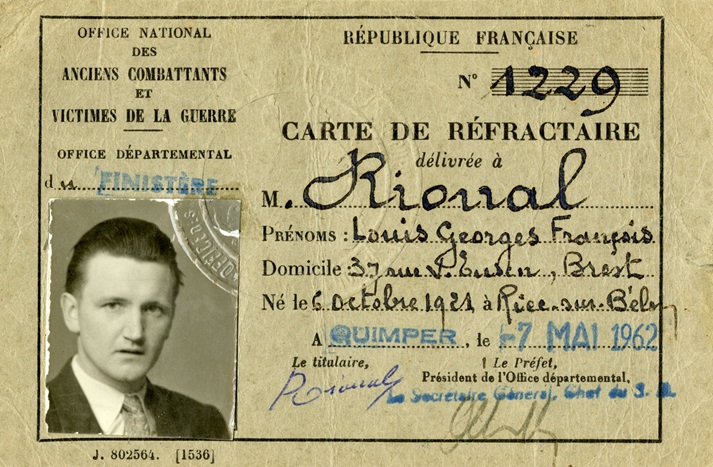 OFFICE NATIONAL
DES
ANCIENS COMBATTANTS
ET
VICTIMES DE LA GUERRE
OFFICE DÉPARTEMENTAL
du FINISTÈRE
RÉPUBLIQUE FRANÇAISE
N° 1229
CARTE DE RÉFRACTAIRE
délivrée à
M. Rional
PRÉNOMS : Louis Georges François
Domicile 37 rue, Brest
Né le 6 Octobre 1921 à Riec-sur-Bélon
A QUIMPER, le -7 MAI 1962
Le titulaire,
Le Préfet,
Président de l'Office départemental,
Le Secrétaire Général, Chef du S. D.
Rional
J. 802564. [1536]